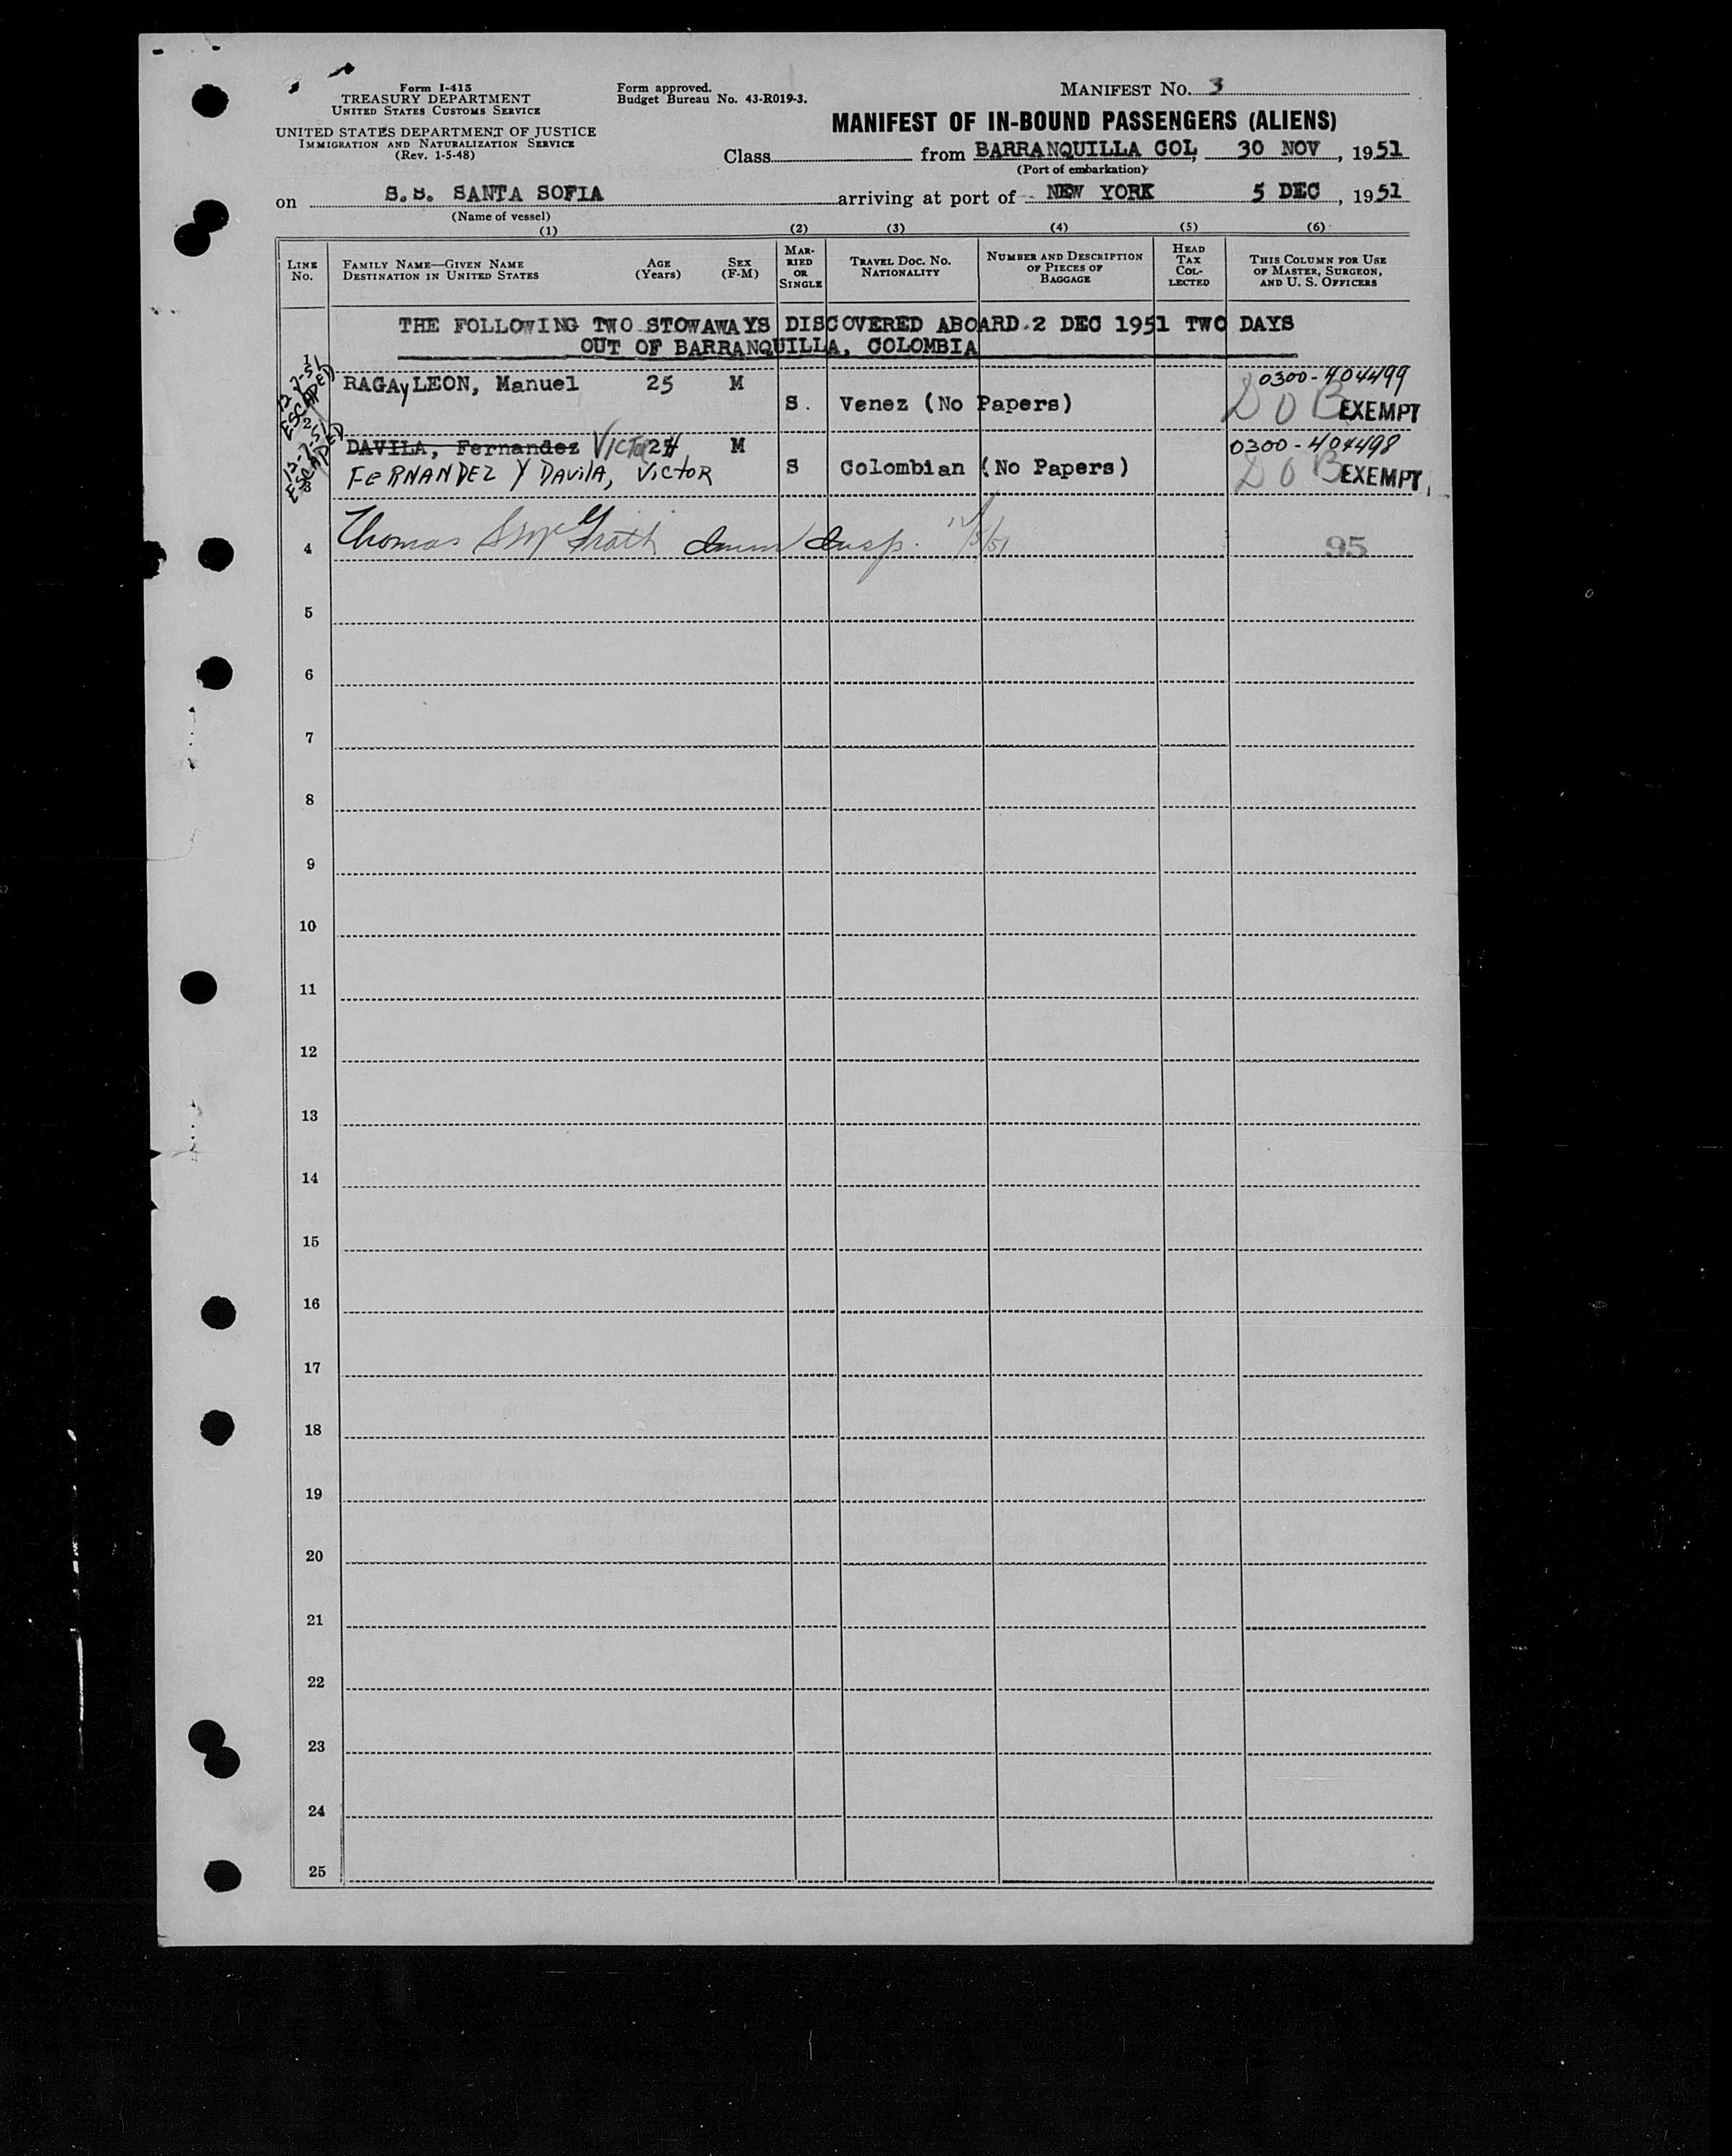 Form I-415
TREASURY DEPARTMENT
UNITED STATES CUSTOMS SERVICE
UNITED STATES DEPARTMENT OF JUSTICE
IMMIGRATION AND NATURALIZATION SERVICE
(Rev. 1-5-48)
Form approved.
Budget Bureau No. 43-R019-3.
MANIFEST No. 3
MANIFEST OF IN-BOUND PASSENGERS (ALIENS)
Class from BARRANQUILLA COL, 30 NOV, 1951
(Port of embarkation)
on S.S. SANTA SOFIA arriving at port of NEW YORK 5 DEC, 1951
(Name of vessel)
(1) (2) (3) (4) (5) (6)
LINE No.
FAMILY NAME—GIVEN NAME
DESTINATION IN UNITED STATES
AGE (Years)
SEX (F-M)
MARRIED OR SINGLE
TRAVEL DOC. NO. NATIONALITY
NUMBER AND DESCRIPTION OF PIECES OF BAGGAGE
HEAD TAX COLLECTED
THIS COLUMN FOR USE OF MASTER, SURGEON, AND U. S. OFFICERS
THE FOLLOWING TWO STOWAWAYS DISCOVERED ABOARD 2 DEC 1951 TWO DAYS
OUT OF BARRANQUILLA, COLOMBIA
1
12-7-51 ESCAPED
RAGAyLEON, Manuel 25 M
0300-404499
S. Venez (No Papers) DOB EXEMPT
2
12-7-51 ESCAPED
DAVILA, Fernandez VICTOR 24 M
0300-404498
FERNANDEZ Y DAVILA, VICTOR S Colombian (No Papers) DOB EXEMPT
3
4 Thomas Imm Insp. 12/5/51 95
5
6
7
8
9
10
11
12
13
14
15
16
17
18
19
20
21
22
23
24
25